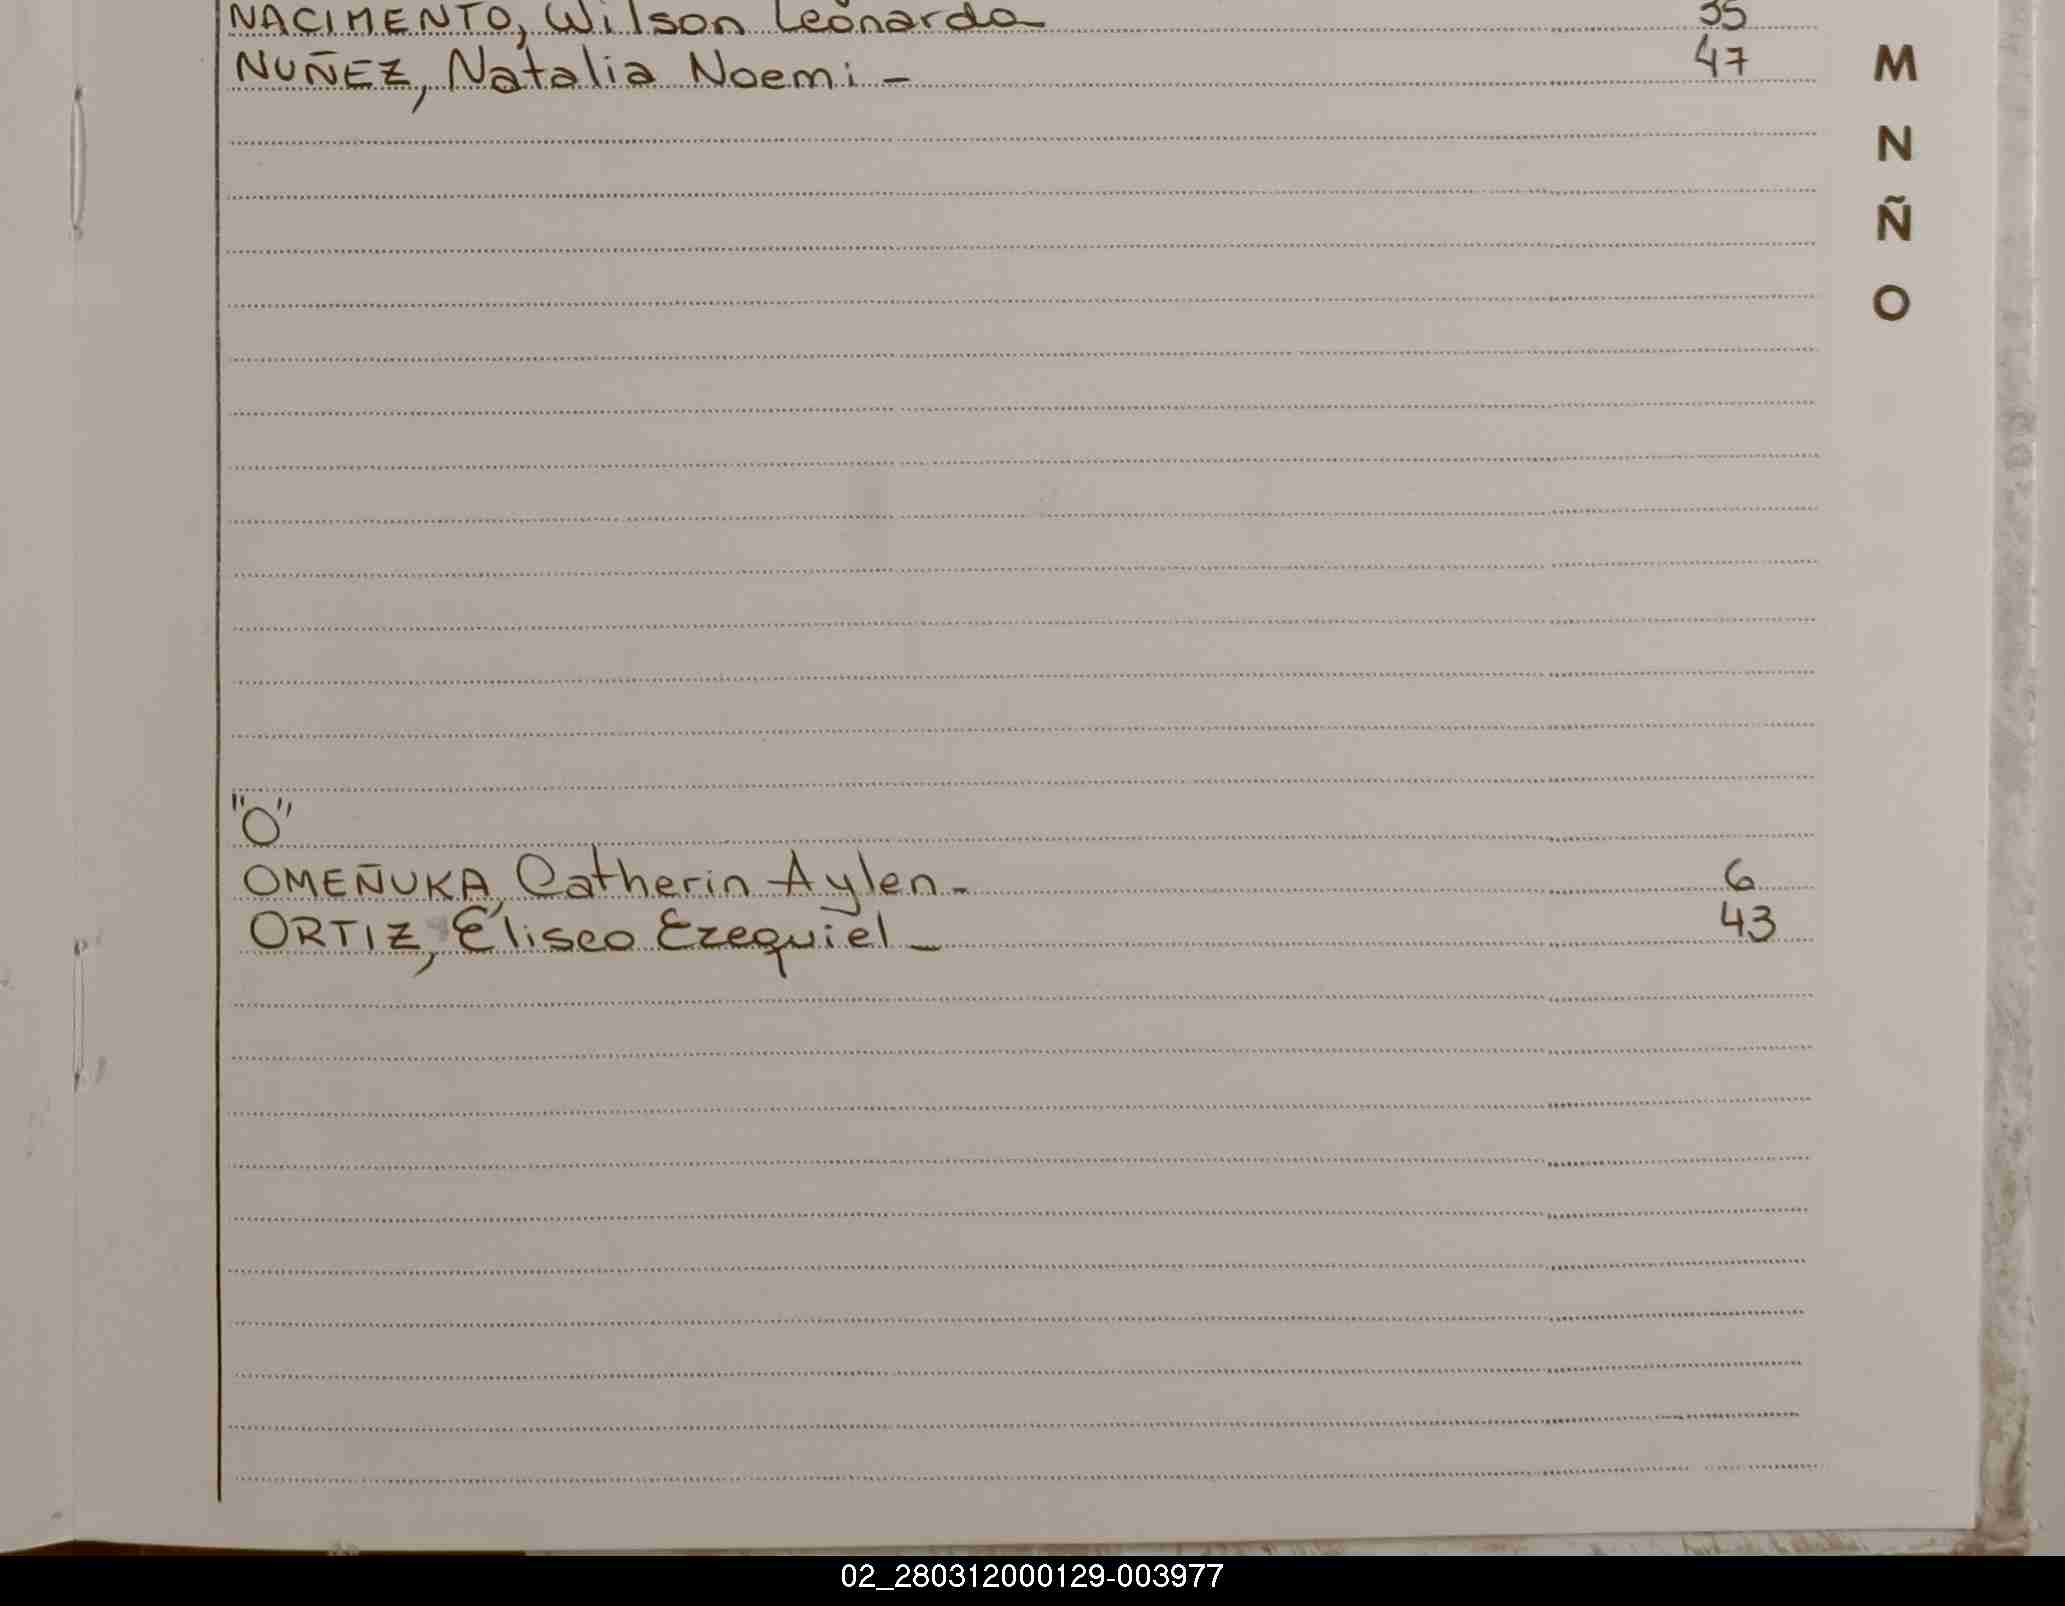 NACIMENTO, Wilson Leonardo 35
NUÑEZ, Natalia Noemi - 47
M
N
Ñ
O
"O"
OMEÑUKA, Catherin Aylen - 6
ORTIZ, Eliseo Ezequiel - 43
02_280312000129-003977